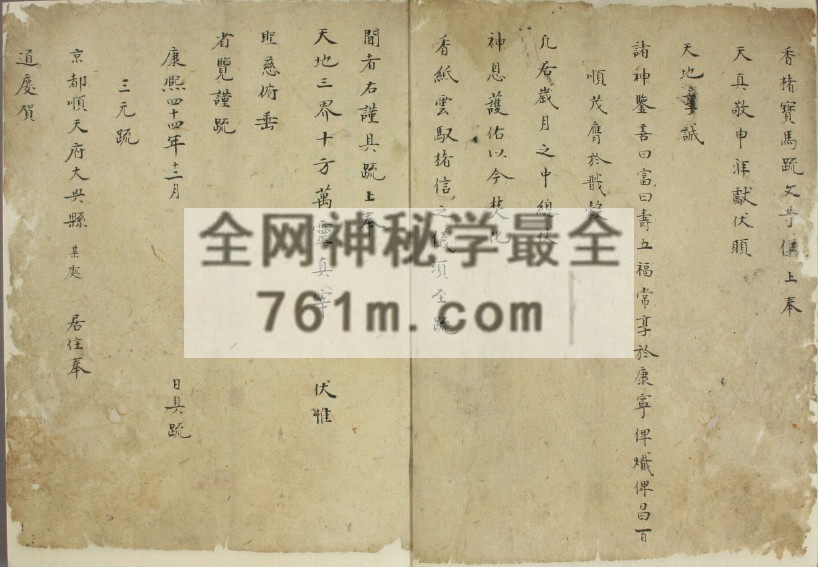 香楮寶馬疏文等儀上奉
天真敬申涓獻伏願
天地
誠
諸神鑒喜曰富曰壽五福常享於康寧俾熾俾昌百
順茂膺於戩穀
凡居歲月之中總
神恩護佑以今焚化
香紙雲馭楮信之儀須至疏
聞者右謹具疏上奉
天地三界十方萬靈真宰 伏惟
慈俯垂
省覽謹疏
康熙四十四年十二月 日具疏
三元疏
京都順天府大興縣某處 居住奉
道慶賀
全网神秘学最全
761m.com